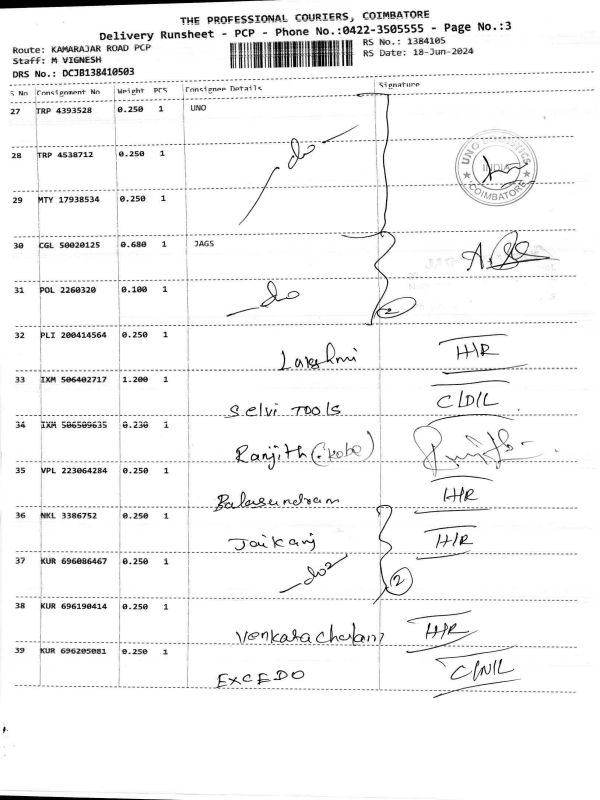 THE PROFESSIONAL COURIERS, COIMBATORE
Delivery Runsheet - PCP - Phone No.:0422-3505555 - Page No.:3
Route: KAMARAJAR ROAD PCP
Staff: M VIGNESH
DRS No.: DCJB138410503
RS No.: 1384105
RS Date: 18-Jun-2024
S No Consignment No Weight PCS Consignee Details Signature
27 TRP 4393528 0.250 1 UNO
do
28 TRP 4538712 0.250 1
UNO LOGISTICS
INDIA
COIMBATORE
29 MTY 17938534 0.250 1
30 CGL 50020125 0.680 1 JAGS
31 POL 2260320 0.100 1 do 2
32 PLI 200414564 0.250 1
Lakshmi H/R
33 IXM 506402717 1.200 1
Selvi TOOLS C/D/L
34 IXM 506509635 0.230 1
Ranjith (Kobe)
35 VPL 223064284 0.250 1
Balasundram H/R
36 NKL 3386752 0.250 1
Jaikanj H/R
37 KUR 696086467 0.250 1
do 2
38 KUR 696190414 0.250 1
Venkatachalam H/R
39 KUR 696205081 0.250 1
EXCEDO C/N/L